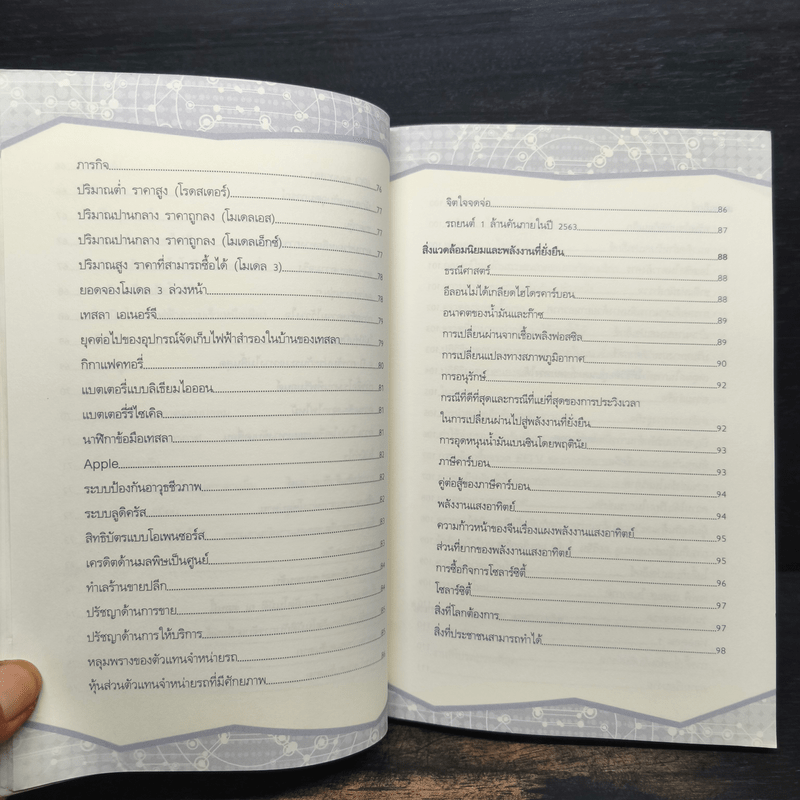 ภารกิจ 76
ปริมาณต่ำ ราคาสูง (โรดสเตอร์) 77
ปริมาณปานกลาง ราคาถูกลง (โมเดลเอส) 77
ปริมาณปานกลาง ราคาถูกลง (โมเดลเอ็กซ์) 77
ปริมาณสูง ราคาที่สามารถซื้อได้ (โมเดล 3) 78
ยอดจองโมเดล 3 ล่วงหน้า 78
เทสลา เอเนอร์จี 79
ยุคต่อไปของอุปกรณ์จัดเก็บไฟฟ้าสำรองในบ้านของเทสลา 79
กิกาแฟคทอรี่ 80
แบตเตอรี่แบบลิเธียมไอออน 81
แบตเตอรี่รีไซเคิล 81
นาฬิกาข้อมือเทสลา 81
Apple 82
ระบบป้องกันอาวุธชีวภาพ 82
ระบบลูดิครัส 82
สิทธิบัตรแบบโอเพนซอร์ส 83
เครดิตด้านมลพิษเป็นศูนย์ 83
ทำเลร้านขายปลีก 84
ปรัชญาด้านการขาย 84
ปรัชญาด้านการให้บริการ
หลุมพรางของตัวแทนจำหน่ายรถ
หุ้นส่วนตัวแทนจำหน่ายรถที่มีศักยภาพ
จิตใจจดจ่อ 86
รถยนต์ 1 ล้านคันภายในปี 2563 87
สิ่งแวดล้อมนิยมและพลังงานที่ยั่งยืน 88
ธรณีศาสตร์ 88
อีลอนไม่ได้เกลียดไฮโดรคาร์บอน 88
อนาคตของน้ำมันและก๊าซ 89
การเปลี่ยนผ่านจากเชื้อเพลิงฟอสซิล 89
การเปลี่ยนแปลงทางสภาพภูมิอากาศ 90
การอนุรักษ์ 92
กรณีที่ดีที่สุดและกรณีที่แย่ที่สุดของการประวิงเวลา
ในการเปลี่ยนผ่านไปสู่พลังงานที่ยั่งยืน 92
การอุดหนุนน้ำมันเบนซินโดยพฤตินัย 93
ภาษีคาร์บอน 93
คู่ต่อสู้ของภาษีคาร์บอน 94
พลังงานแสงอาทิตย์ 94
ความก้าวหน้าของจีนเรื่องแผงพลังงานแสงอาทิตย์ 95
ส่วนที่ยากของพลังงานแสงอาทิตย์ 95
การซื้อกิจการโซลาร์ซิตี้ 96
โซลาร์ซิตี้ 97
สิ่งที่โลกต้องการ 97
สิ่งที่ประชาชนสามารถทำได้ 98